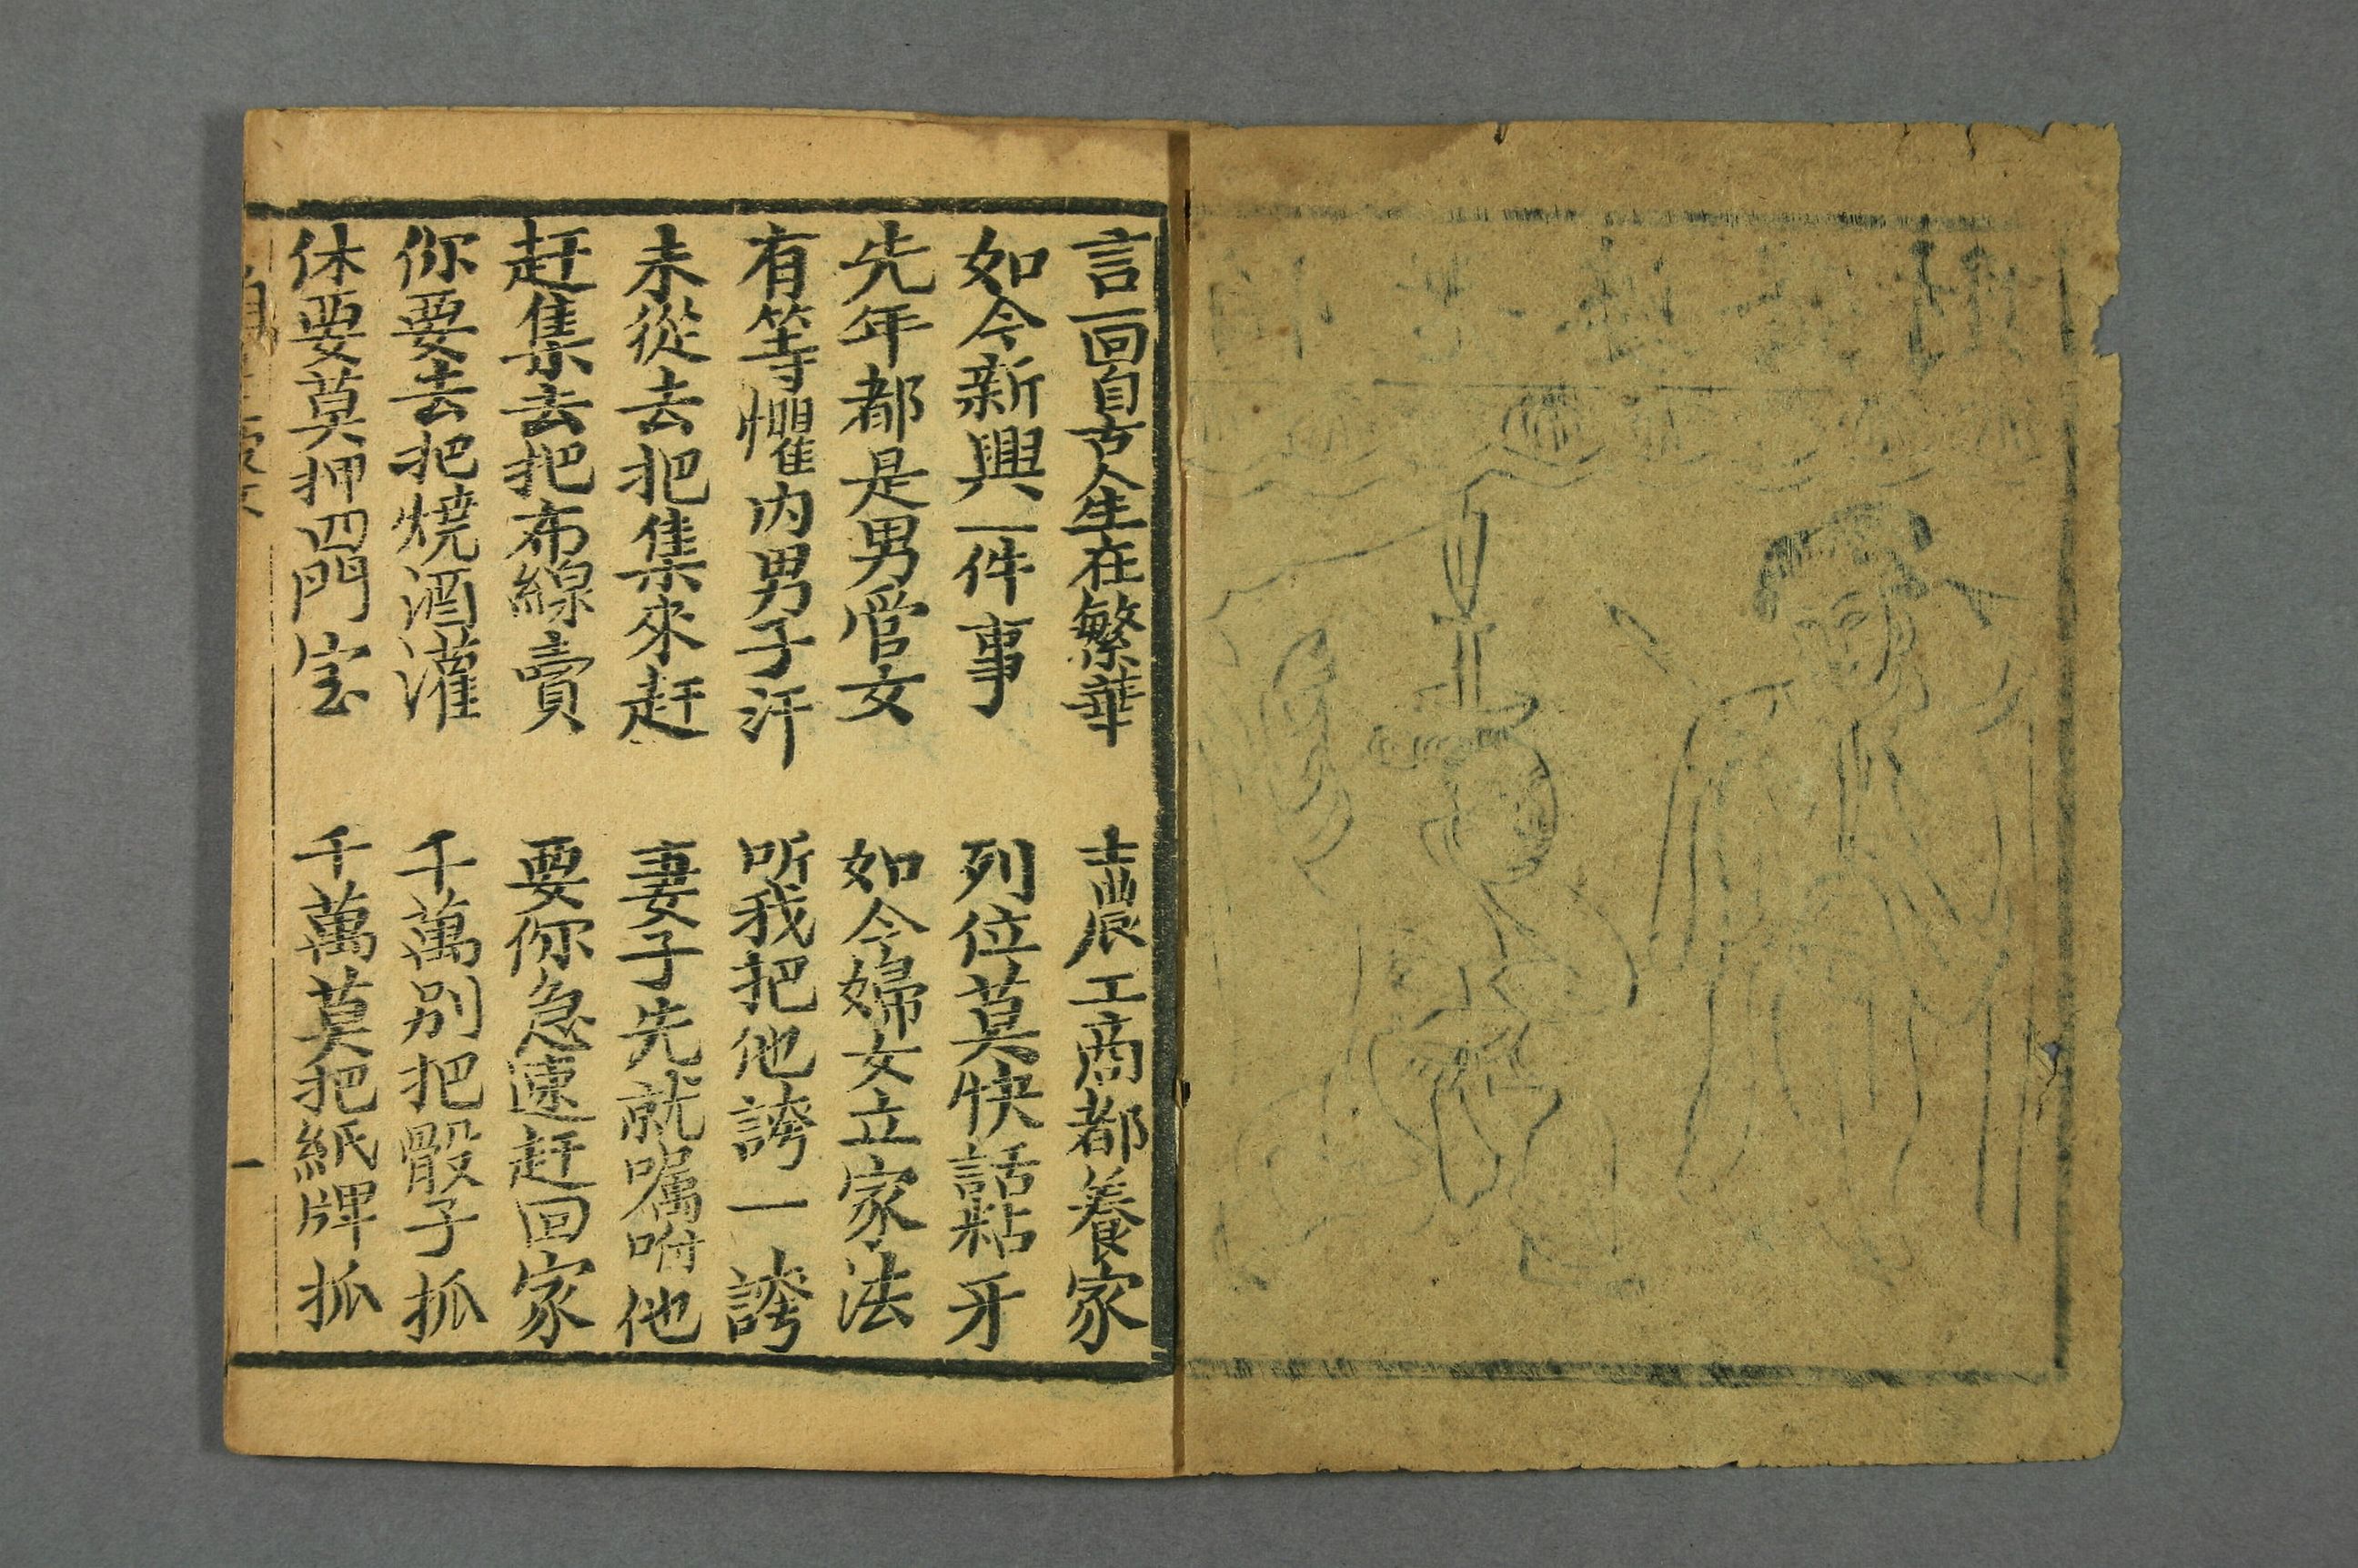 言一回自古人生在繁華　士農工商都養家
如今新興一件事　列位莫快話粘牙
先年都是男管女　如今婦女立家法
有等懼内男子汗　听我把他誇一誇
未從去把集來赶　妻子先就嘱咐他
赶集去把布線賣　要你急速赶回家
你要去把燒酒灌　千萬别把骰子抓
休要莫押四門宝　千萬莫把紙牌抓
一